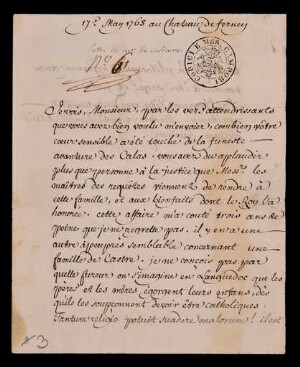 17e. May 1765 au Chateau de ferney
No 61
Je vois, Monsieur, par les vers attendrissants
que vous avez bien voulu m'envoier, combien vôtre
cœur sensible a été touché de la funeste
avanture des Calas. vous avez dû applaudir
plus que personne à la justice que Mesrs. les
maîtres des requêtes viennent de rendre à
cette famille, et aux bienfaits dont le Roy l'a
honorée. cette affaire m'a couté trois ans de
peine que je ne regrette pas. il y en a une
autre à peu près semblable concernant une
famille de Castre. je ne conçois pas par
quelle fureur on s'imagine en Languedoc que les
pères et les mères égorgent leurs enfans, dès
qu'ils les soupçonnent devoir être catholiques.
Tantum relligio potuit suadere malorum! il est
3